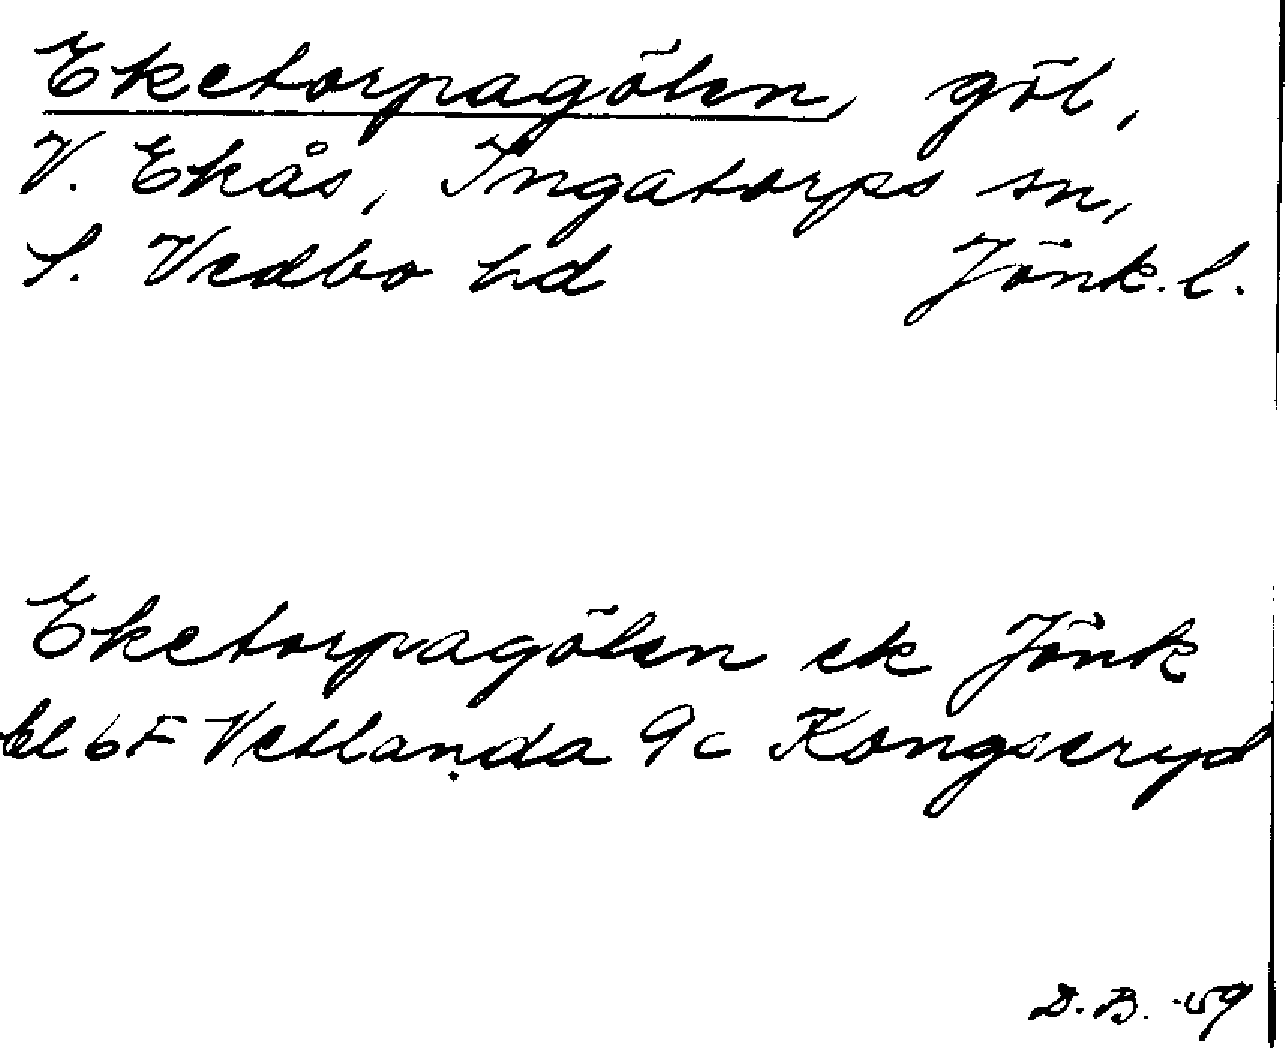 Eketorpagölen, göl,
V. Ekås, Ingatorps sn,
S. Vedbo hd Jönk. l.
Eketorpagölen ek Jönk
bl 6F Vetlanda 9c Kongseryd
D. B. -59